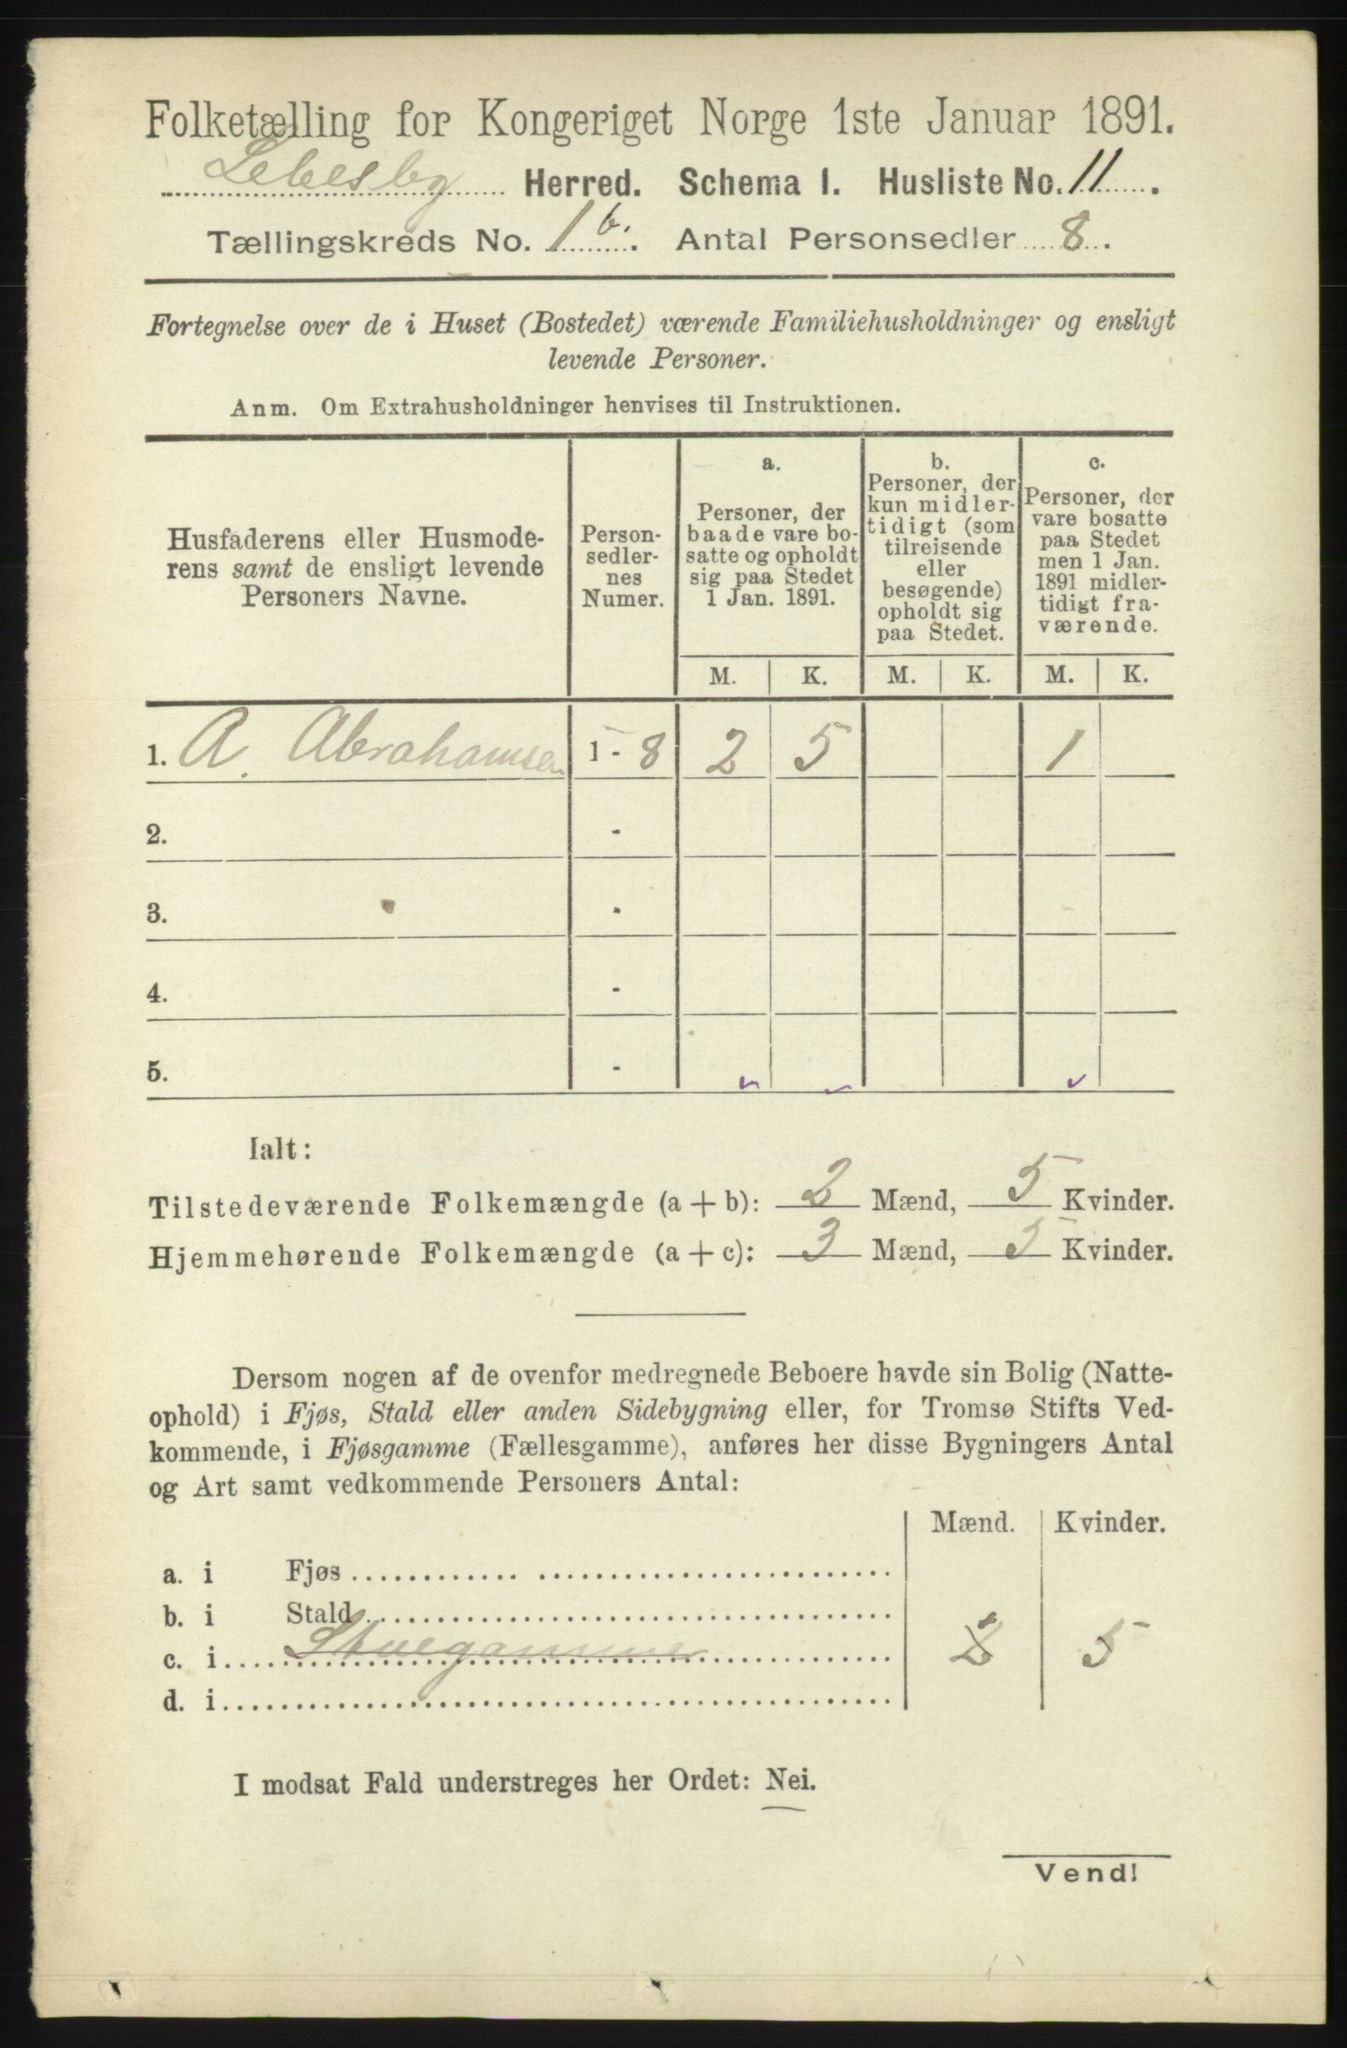 Folketælling for Kongeriget Norge 1ste Januar 1891.
Lebesby Herred. Schema 1. Husliste No. 11.
Tællingskreds No. 1 b. Antal Personsedler 8.
Fortegnelse over de i Huset (Bostedet) værende Familiehusholdninger og ensligt
levende Personer.
Anm. Om Extrahusholdninger henvises til Instruktionen.
Husfaderens eller Husmode-
rens samt de ensligt levende
Personers Navne.
Person-
sedler-
nes
Numer.
a.
Personer, der
baade vare bo-
satte og opholdt
sig paa Stedet
1 Jan. 1891.
b.
Personer, der
kun midler-
tidigt (som
tilreisende
eller
besøgende)
opholdt sig
paa Stedet.
c.
Personer, der
vare bosatte
paa Stedet
men 1 Jan.
1891 midler-
tidigt fra-
værende.
M. K. M. K. M. K.
1. A. Abrahamsen 1 - 8 2 5 1
2. -
3. -
4. -
5. -
Ialt:
Tilstedeværende Folkemængde (a + b): 2 Mænd, 5 Kvinder.
Hjemmehørende Folkemængde (a + c): 3 Mænd, 5 Kvinder.
Dersom nogen af de ovenfor medregnede Beboere havde sin Bolig (Natte-
ophold) i Fjøs, Stald eller anden Sidebygning eller, for Tromsø Stifts Ved-
kommende, i Fjøsgamme (Fællesgamme), anføres her disse Bygningers Antal
og Art samt vedkommende Personers Antal:
Mænd. Kvinder.
a. i Fjøs
b. i Stald
c. i Stuegamme 2 5
d. i
I modsat Fald understreges her Ordet: Nei.
Vend!